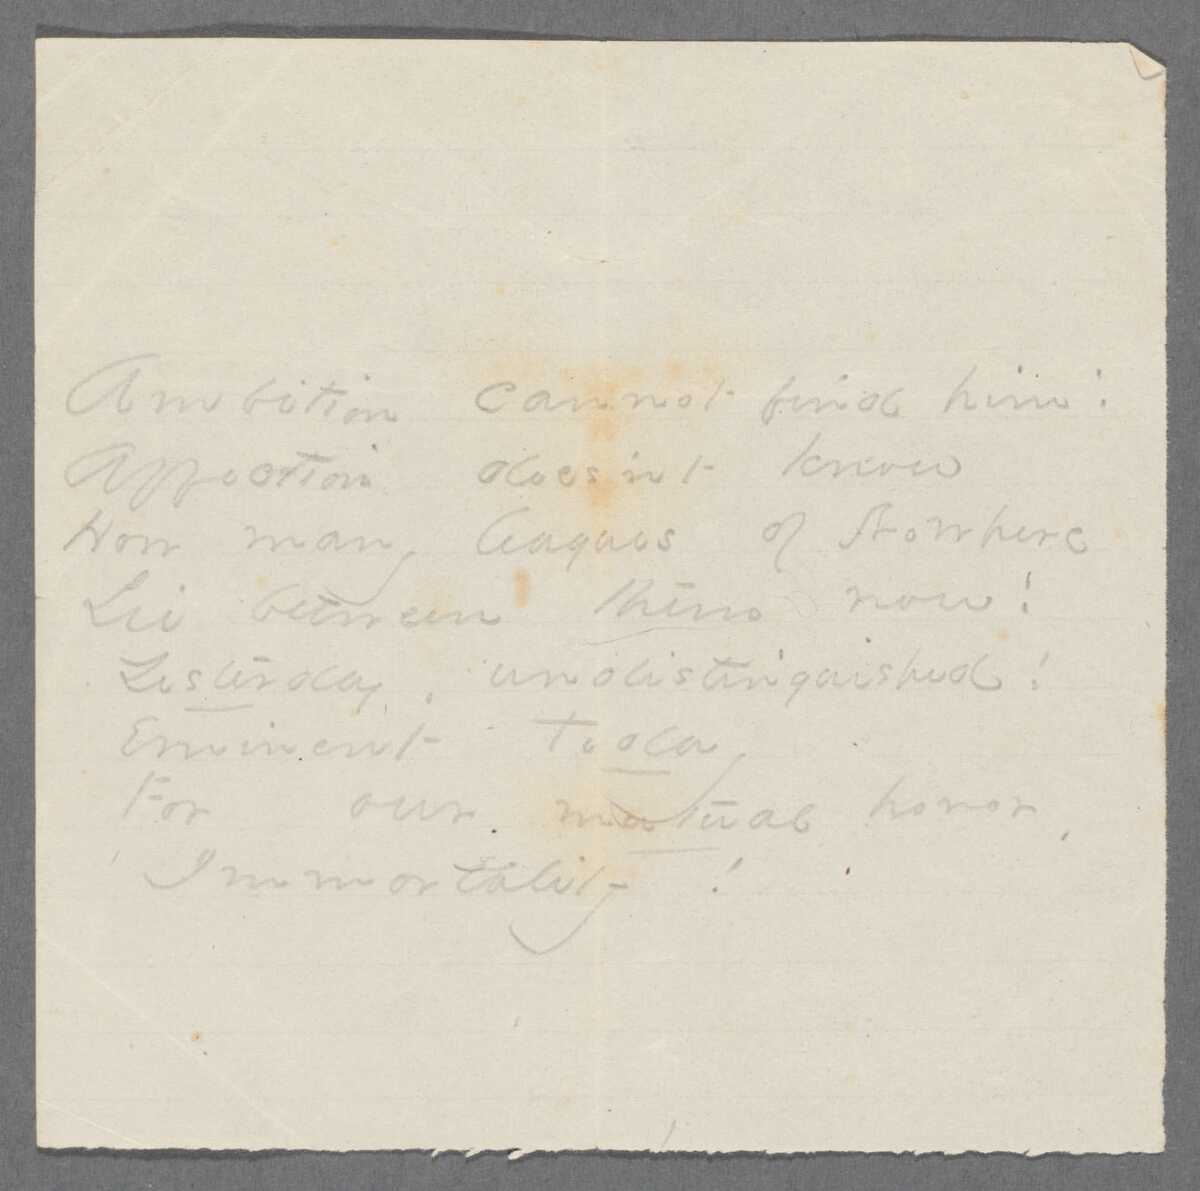 Ambition cannot find him!
Affection does'nt know
How many leagues of Nowhere
Lie between them now!
Yesterday, undistinguished!
Eminent Today
For our mutual honor,
Immortality!